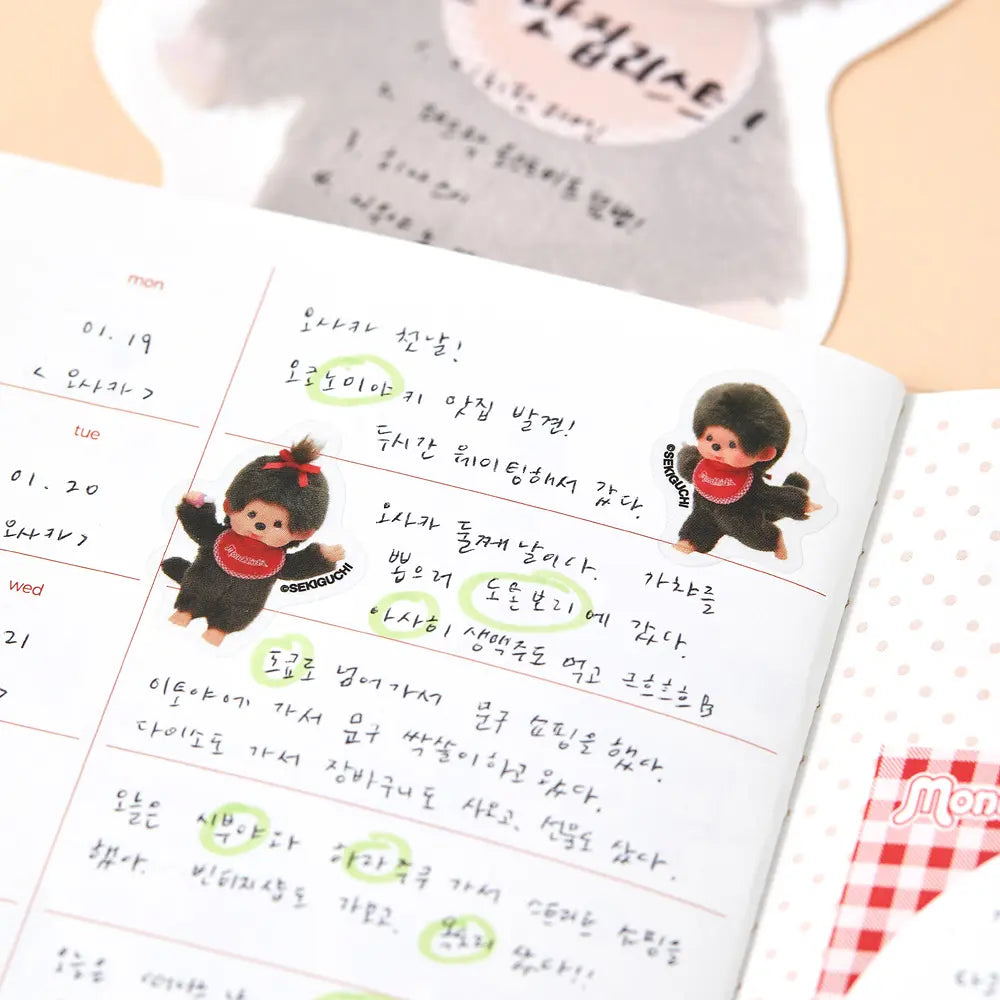 맛집리스트!
1.
2.
3.
4.
mon
01. 19
< 오사카 >
오사카 첫날!
오코노미야키 맛집 발견!
두시간 웨이팅해서 갔다.
©SEKIGUCHI
tue
01. 20
오사카 >
오사카 둘째 날이다. 가챠를
뽑으러 도톤보리에 갔다.
아사히 생맥주도 먹고 크흐흐흐
Monchhichi
©SEKIGUCHI
wed
21
>
도쿄로 넘어가서 문구 쇼핑을 했다.
이토야에 가서 문구 싹쓸이하고 왔다.
다이소도 가서 장바구니도 사오고, 선물도 샀다.
오늘은 시부야와 하라주쿠 가서 스트리트 쇼핑을
했다. 빈티지샵도 가보고, 샀다!!
오늘은
Mon